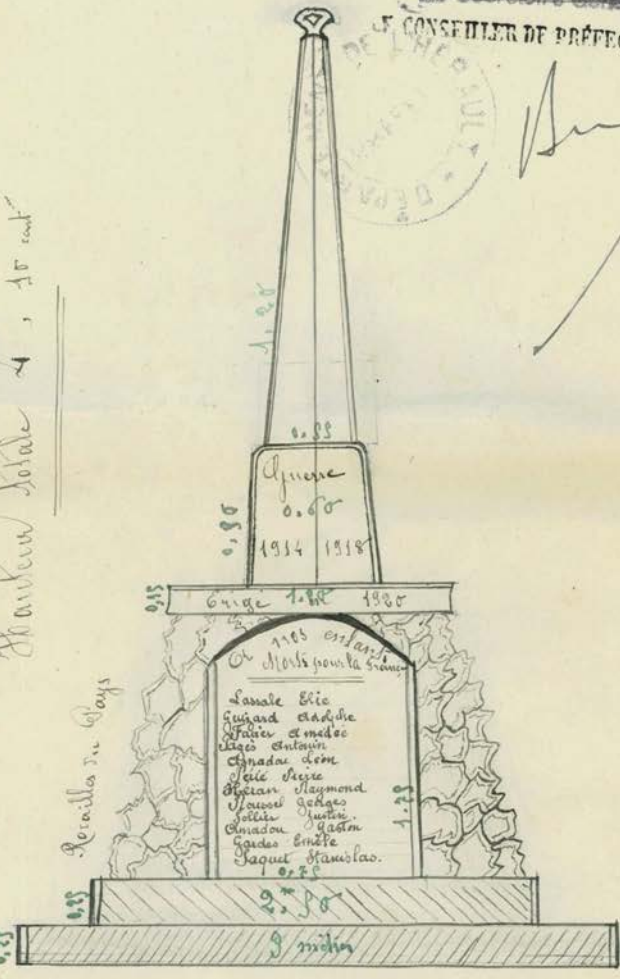 CONSEILLER DE PRÉFEC
DÉPARTEMENT DE L'HÉRAULT
Hauteur totale 4, 10 cent
1.20
0.55
Guerre
0.60
0,80
1914 1918
0,15
Erigé 1920
à nos enfants
Morts pour la France
Lassale Elie
Guizard Adolphe
Fabier Amédée
Sagès Antonin
Amadou Léon
Pierre
Héran Raymond
Roussel Georges
Jollier Justin.
Amadou Gaston
Gardes Emile
Paquet Stanislas.
1.75
Rocailles du Pays
0,75
0,25
2,m50
0,25
3 mètres